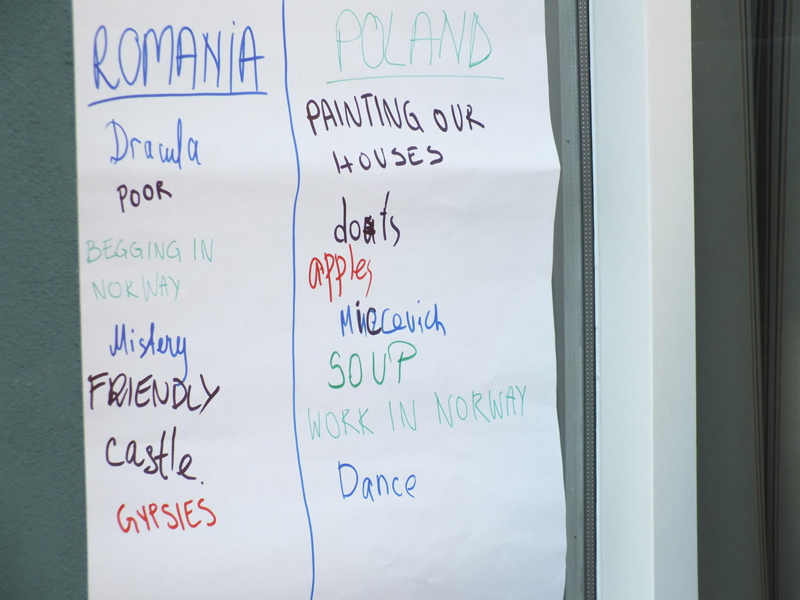 ROMANIA
Dracula
POOR
BEGGING IN
NORWAY
Mistery
FRIENDLY
castle.
GYPSIES
POLAND
PAINTING OUR
HOUSES
apples
SOUP
WORK IN NORWAY
Dance